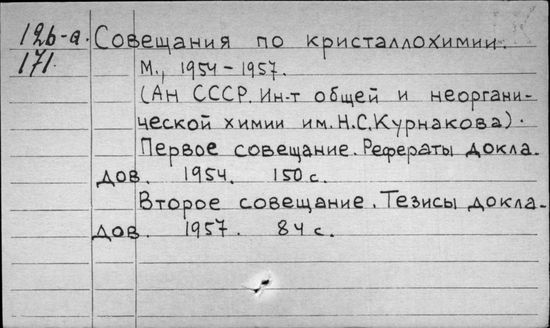 12б-а. Совещания по кристаллохимии.
171. М., 1954-1957.
(Ан СССР. Ин-т общей и неоргани-
ческой химии им. Н.С. Курнакова).
Первое совещание. Рефераты докла-
дов. 1954. 150 с.
Второе совещание. Тезисы докла-
дов. 1957. 84 с.